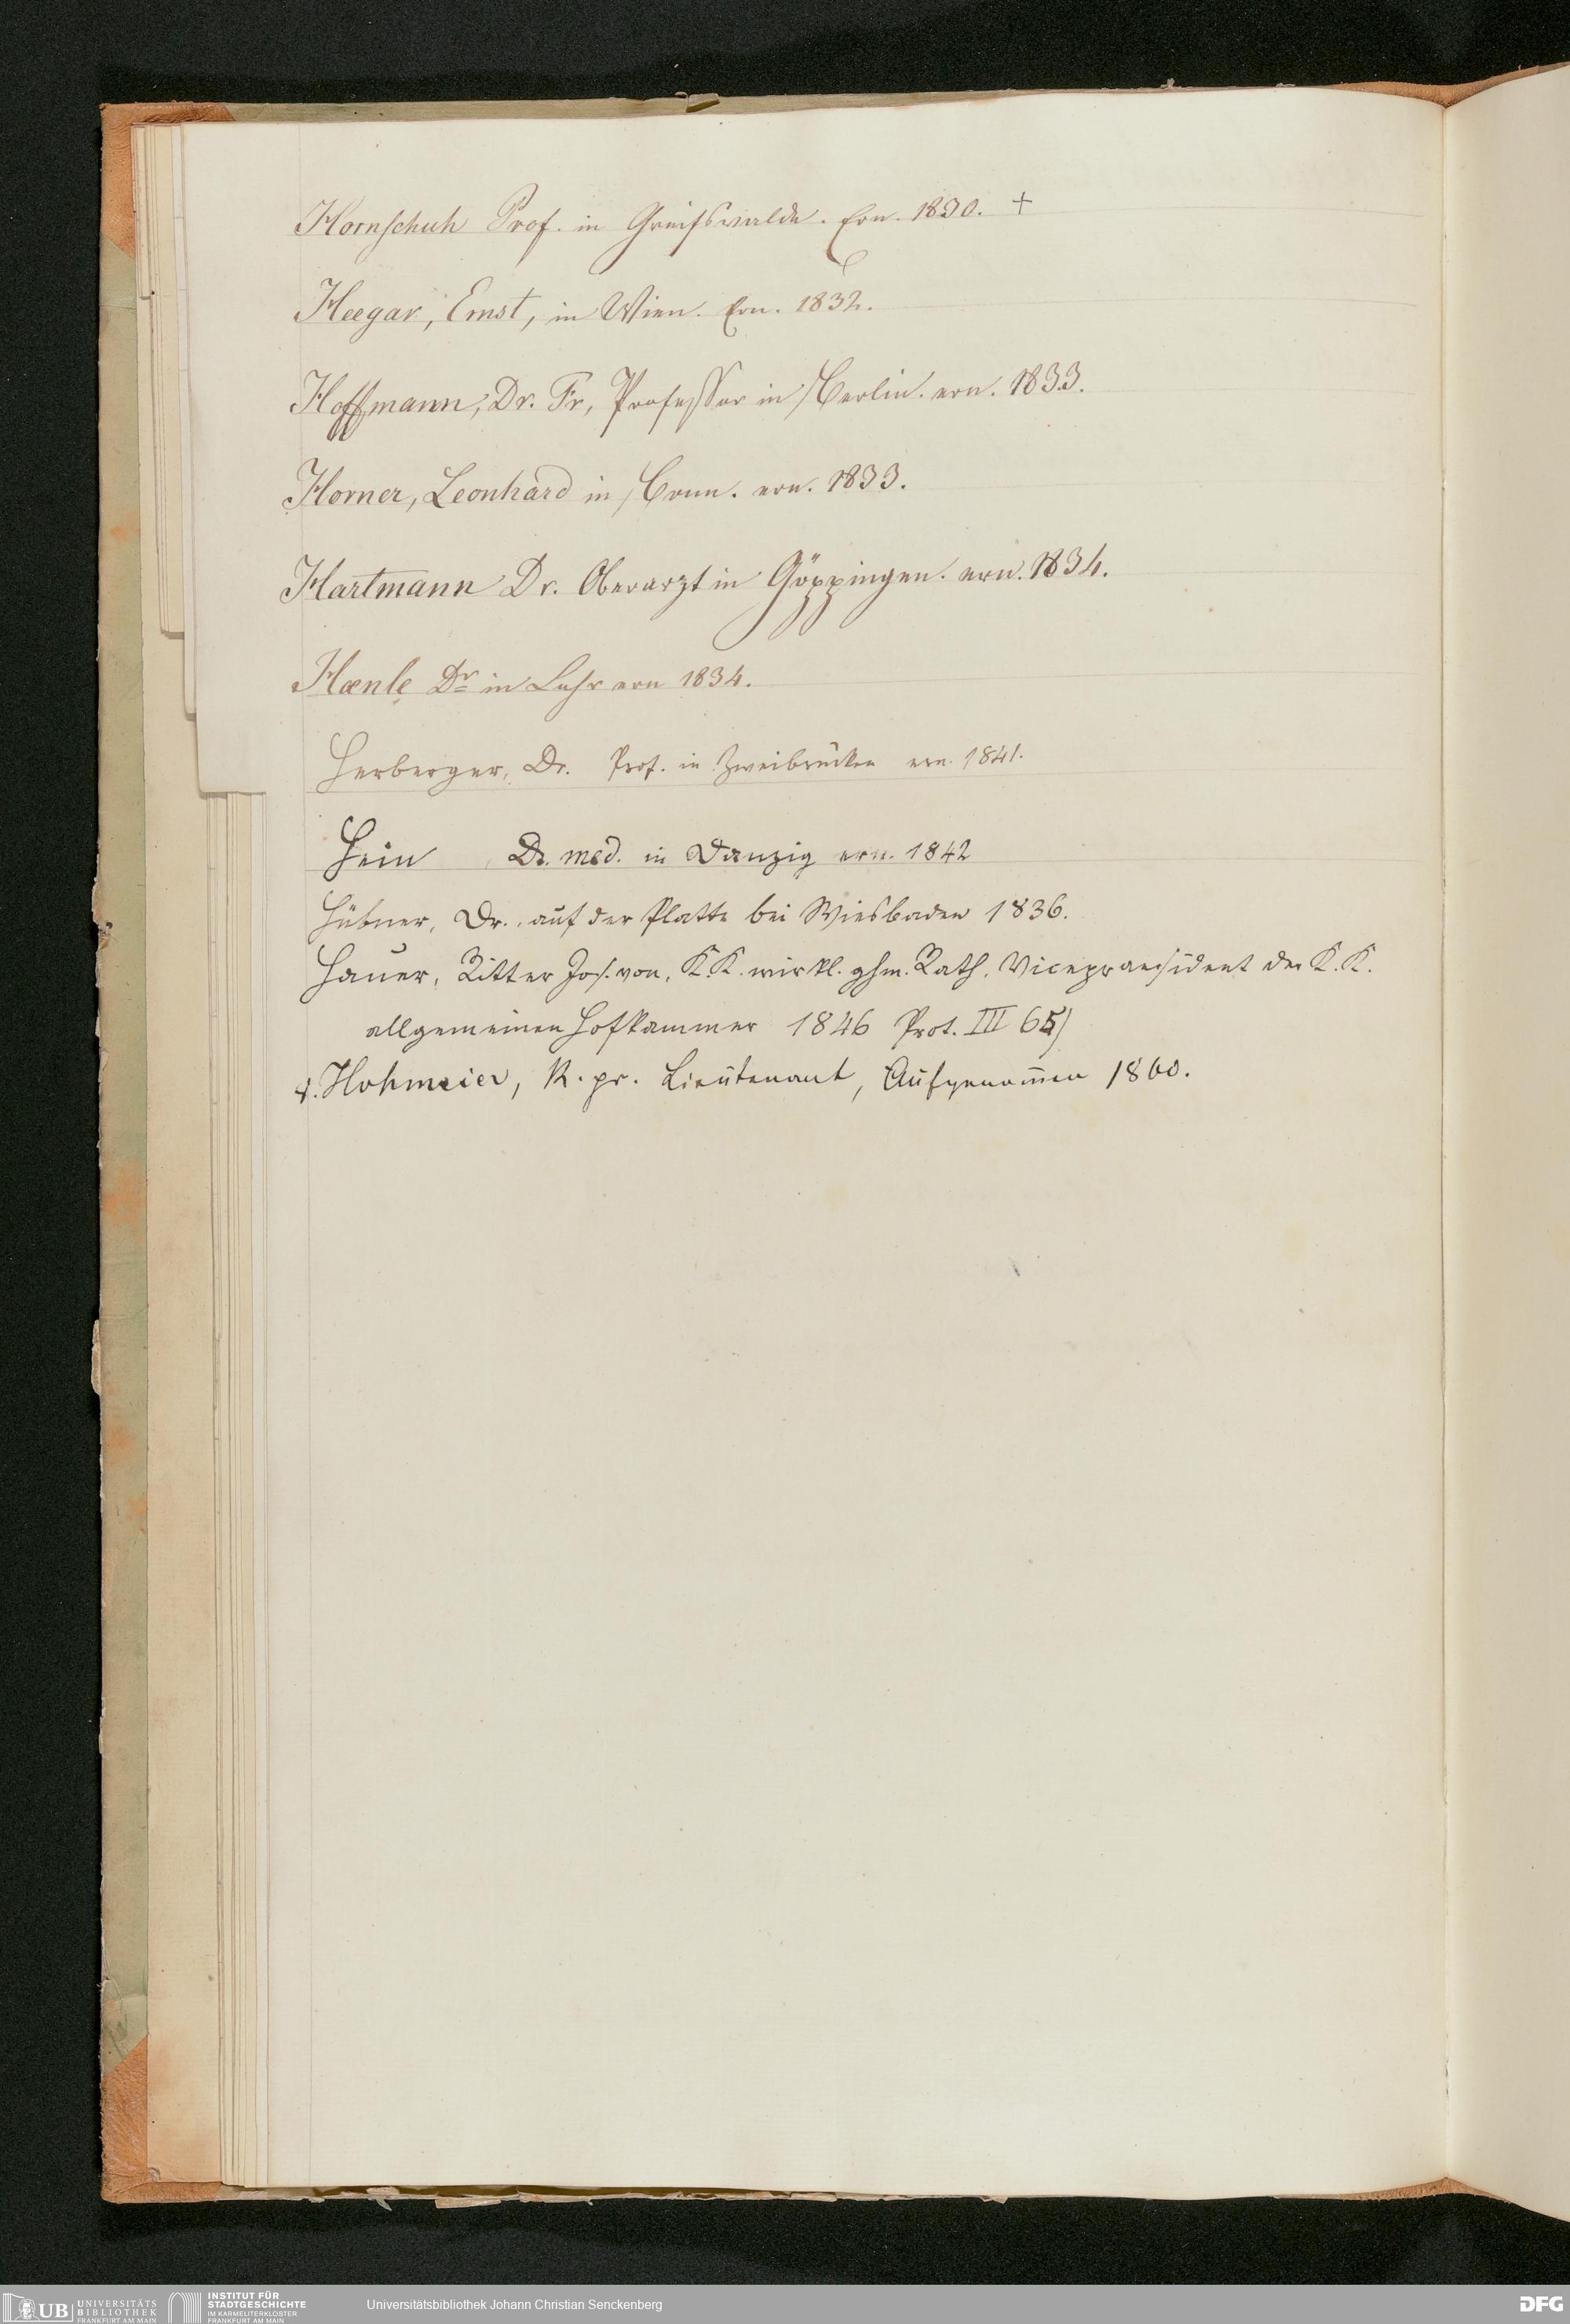 Hornschuh Prof. in Greifswalde. Ern. 1830. +
Heegar, Ernst, in Wien. Ern. 1832.
Hoffmann, Dr. Fr, Professor in Berlin. ern. 1833.
Horner, Leonhard in Bonn. ern. 1833.
Hartmann Dr. Oberarzt in Göppingen. ern. 1834.
Hænle Dr in Lahr ern 1834.
Herberger, Dr. Prof. in Zweibrücken ern. 1841.
Hein Dr. med. in Danzig ern. 1842
Hübner, Dr., auf der Platte bei Wiesbaden 1836.
Hauer, Ritter Jos. von, K.K. wirkl. ghm. Rath, Vicepraesident der K.K.
allgemeinen Hofkammer 1846 Prot. III 65)
v. Hohmeier, K. pr. Lieutenant, Aufgenomen 1860.
UB UNIVERSITÄTS BIBLIOTHEK FRANKFURT AM MAIN
INSTITUT FÜR STADTGESCHICHTE IM KARMELITERKLOSTER FRANKFURT AM MAIN
Universitätsbibliothek Johann Christian Senckenberg
DFG